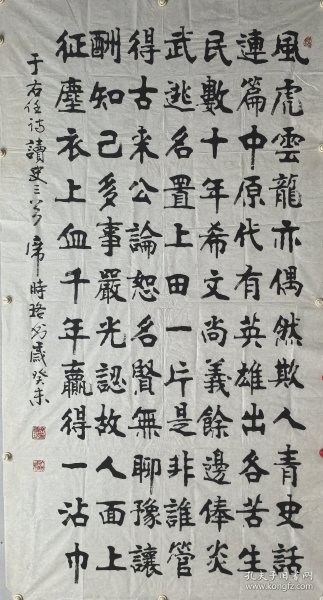 風虎雲龍亦偶然欺人青史話
連篇中原代有英雄出各苦生
民數十年希文尚義餘邊俸炎
武逃名置上田一片是非誰管
得古來公論恕名賢無聊豫讓
酬知己多事嚴光認故人面上
征塵衣上血千年贏得一沾巾
于右任詩讀史三首席時珞書歲癸未
孔夫子旧书网